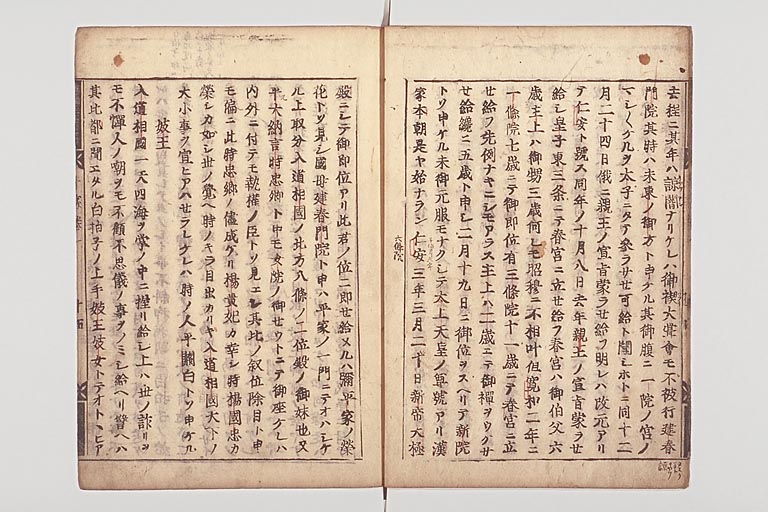 去程ニ其年ハ諒闇ナリケレハ御禊大嘗會モ不被行建春
門院其時ハ未東ノ御方ト申ケル其御腹ニ一院ノ宮ノ
マシ〱ケルヲ太子ニタテ參ラサセ可給ト聞シホトニ同十二
月二十四日俄ニ親王ノ宣旨蒙ラせ給フ明レハ改元アリ
テ仁安ト號ス同年ノ十月八日去年親王ノ宣旨蒙ラせ
給シ皇子東三条ニテ春宮ニ立せ給フ春宮ハ御伯父六
歳主上ハ御甥三歳何レモ昭穆ニ不相叶但寛和二年ニ
一條院七歳ニテ御即位有三條院十一歳ニテ春宮ニ立
せ給フ先例ナキニシモアラス主上ハ二歳ニテ御禪ヲウケサ
せ給纔ニ五歳ト申シ二月十九日ニ御位ヲスヘリテ新院
トソ申ケル未御元服モナクシテ太上天皇ノ尊號アリ漢
家本朝是ヤ始ナラン仁安三年三月二十日新帝大極
六條院
殿ニシテ御即位アリ此君ノ位ニ即せ給ヌルハ彌平家ノ榮
花トソ見シ國母建春門院ト申ハ平家ノ一門ニテオハシケ
ル上取分入道相國ノ北方八條ノ二位殿ノ御妹也又
平大納言時忠卿ト申モ女院ノ御せウトニテ御座ケレハ
内外ニ付テモ執權ノ臣トソ見エシ其比ノ叙位除目ト申
モ偏ニ此時忠卿ノ儘成ケリ楊貴妃カ幸シ時楊國忠カ
榮シカ如シ世ノ覺ヘ時ノキラ目出カリキ入道相國天下ノ
大小事ヲ宣ヒアハせラレケレハ時ノ人平關白トソ申ケル
妓王
入道相國一天四海ヲ掌ノ中ニ握リ給シ上ハ世ノ詐リヲ
モ不憚人ノ嘲ヲモ不顧不思儀ノ事ヲノミシ給ヘリ譬ヘハ
其比都ニ聞エタル白拍子ノ上手妓王妓女トテオトヽヒア